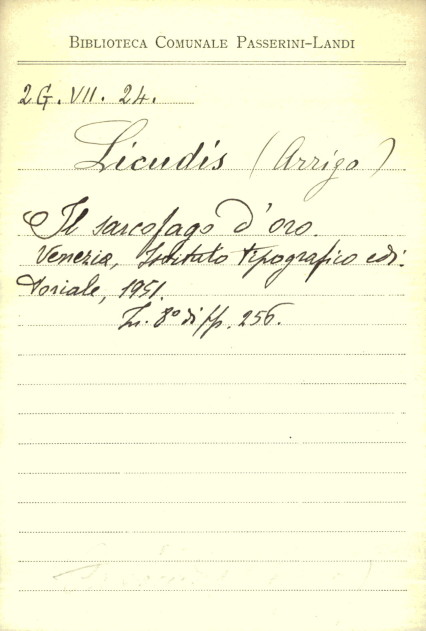 BIBLIOTECA COMUNALE PASSERINI-LANDI
2G. VII. 24.
Licudis (Arrigo)
Il sarcofago d'oro.
Venezia, Istituto tipografico edi-
toriale, 1951.
In. 8° di pp. 256.